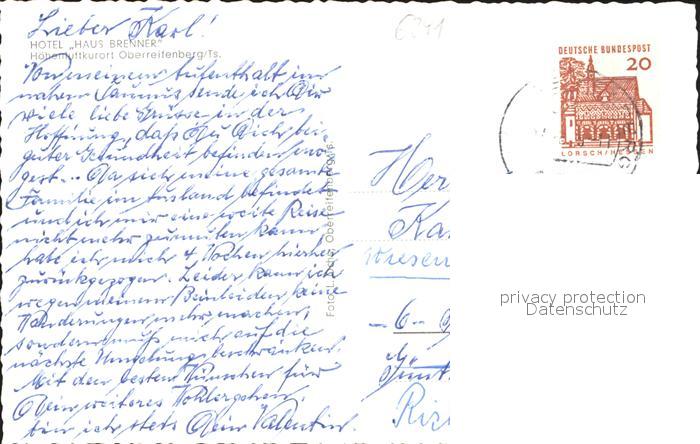 Lieber Karl!
6211
HOTEL „HAUS BRENNER"
Höhenluftkurort Oberreifenberg/Ts.
Von meinem Aufenthalt im
nahen Taunus sende ich Dir
viele liebe Grüsse in der
Hoffnung, daß Du Dich bei
guter Gesundheit befinden mö-
gest. Da sich meine gesamte
Familie im Ausland befindet
und ich mir eine weite Reise
nicht mehr zumuten kann
habe ich mich 4 Wochen hierher
zurückgezogen. Leider kann ich
wegen meinem Beinleiden keine
Wanderungen mehr machen,
sondern muß mich auf die
nächste Umgebung beschränken.
Mit den besten Wünschen für
Dein weiteres Wohlergehen,
bin ich stets Dein Valentin.
Foto Oberreifenberg/Ts.
DEUTSCHE BUNDESPOST
20
LORSCH/HESSEN
Her
Ka
Wiesen
- 6 -
Riz
privacy protection
Datenschutz